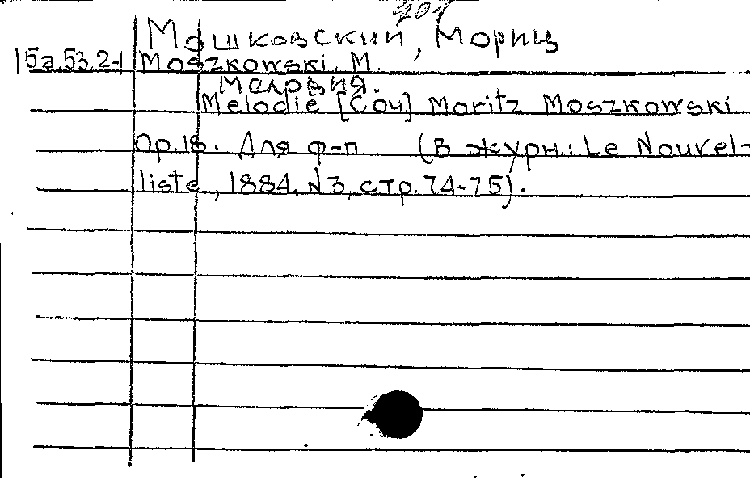 Мошковский, Мориц
15а.53.2-1 Moszkowski, M.
Мелодия.
Melodie [Соч] Moritz Moszkowski
Op.18. Для ф-п (В журн: Le Nouvel-
liste, 1884, N3, стр. 74-75).